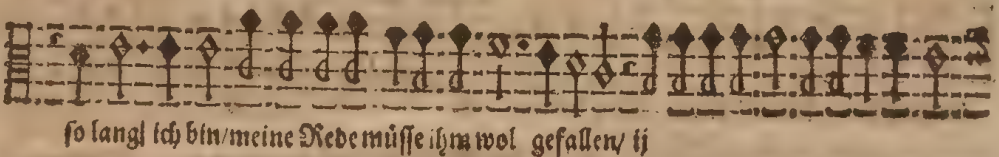 so lang ich bin/meine Rede müsse ihm wol gefallen/ ij